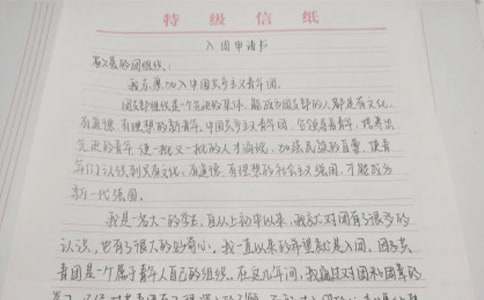 特级信纸
入团申请书
敬爱的团组织:
我志愿加入中国共产主义青年团。
团支部组织是一个先进的集体,能成为团支部的人都是有文化、
有道德、有理想的新青年。中国共产主义青年团,它领导着青年,培养出
先进的青年,使一批又一批的人才涌现,加强民族的力量,使青
年们认识到只有文化、有道德、有理想的社会主义强国,才能成为
新一代强国。
我是一名高一的学生,自从上初中以来,我就对团有了很多的
认识,也有了很大的好奇心。我一直以来的希望就是入团。团
青团是一个属于青年人自己的组织。在这几年间,我对团和团章的